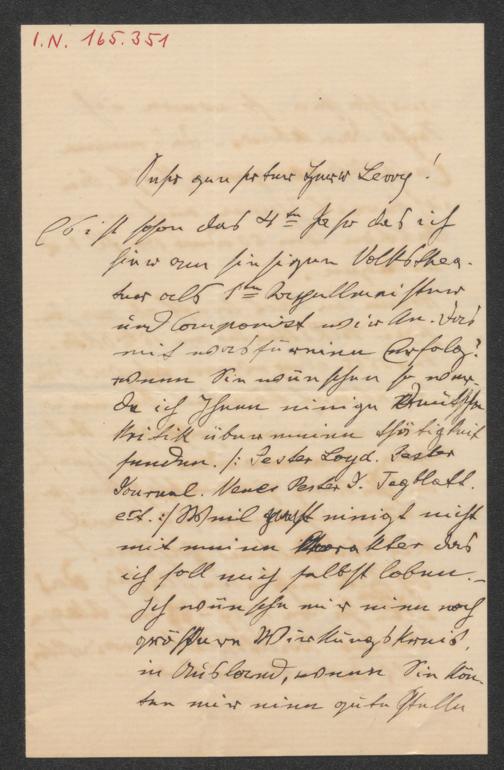 I.N. 165.351
Sehr geehrter Herr Levy!
Es ist schon das 4te Jahr das ich
hier am hiesigen Volksthea-
ter als 1ten Kapellmeister
und Componist wirke. Und
mit was für einen Erfolg?
wenn Sie wünschen so wer-
de ich Ihnen einige Deutsche
Kritik über meine thätigkeit
senden. /: Pester Loyd. Pester
Journal. Neues Pester J. Tagblatt.
ect. :/ Weil einigt nicht
mit meinen Charakter das
ich soll mich selbst loben._
Ich wünsche mir einen noch
größern Wirkungskreis,
in Ausland, wenn Sie kön-
ten mir eine gute Stelle